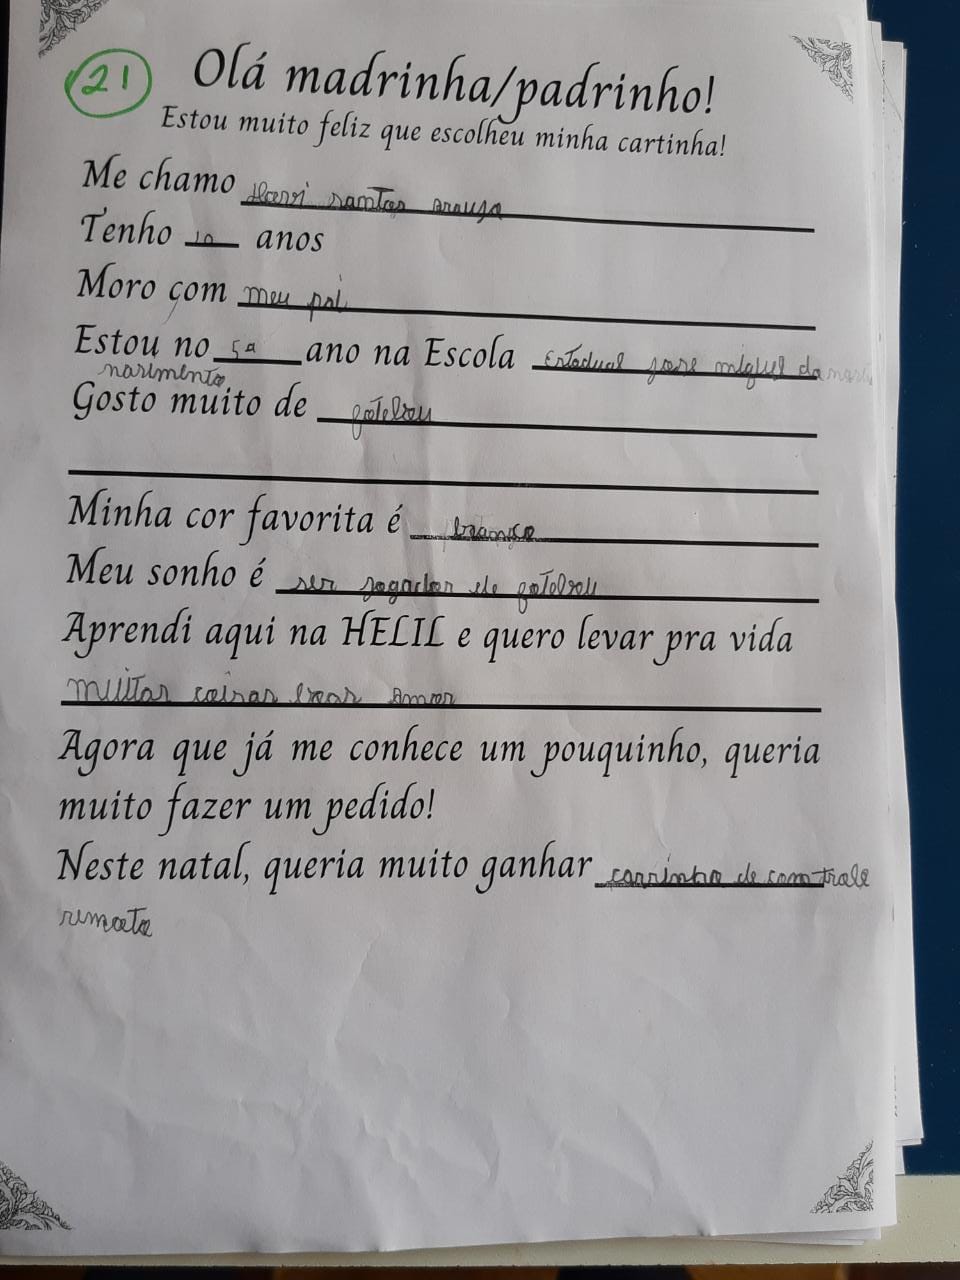 21
Olá madrinha/padrinho!
Estou muito feliz que escolheu minha cartinha!
Me chamo santos Arauja
Tenho 10 anos
Moro com meu pai
Estou no 5ª ano na Escola Estadual jose miguel do
narimento
Gosto muito de fotebou
Minha cor favorita é branco
Meu sonho é ser jogador de fotebou
Aprendi aqui na HELIL e quero levar pra vida
muitas coisas boas Amor
Agora que já me conhece um pouquinho, queria
muito fazer um pedido!
Neste natal, queria muito ganhar carrinho de comtrole
remoto